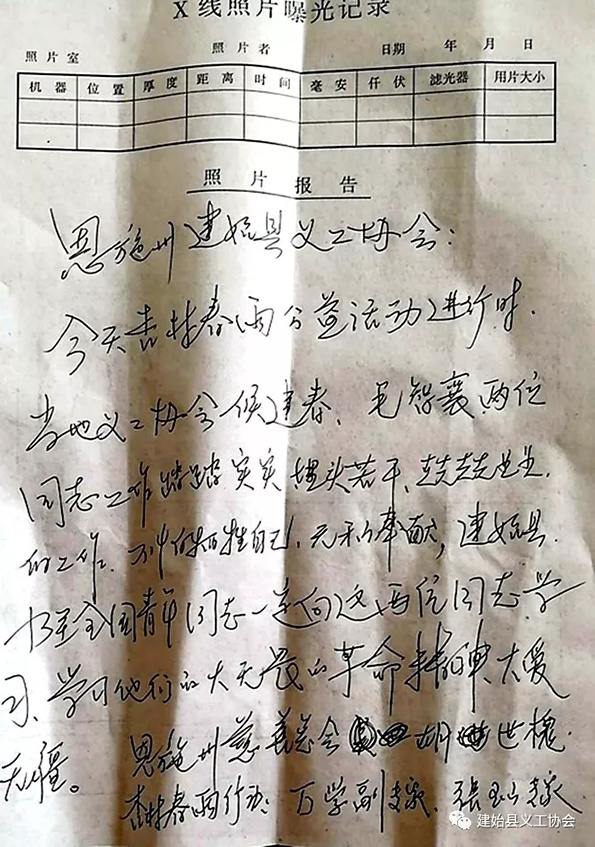 X线照片曝光记录
照片室 照片者 日期 年 月 日
机器 位置 厚度 距离 时间 毫安 仟伏 滤光器 用片大小
照片报告
恩施州建始县义工协会:
今天杏林春雨公益活动进行时.
当地义工协会候建春、毛智襄两位
同志工作踏踏实实埋头若干、兢兢
的工作.不惜牺牲自己.无私奉献,建始县
全国青年同志一定向这两位同志学
习、学习他们的大无畏的革命精神、大爱
无疆。 恩施州慈善总会 胡世槐.
杏林春雨行动: 万学副专家. 張 专家
建始县义工协会